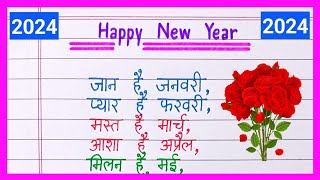 2024
Happy New Year
2024
जान है जनवरी,
प्यार है फरवरी,
मस्त है मार्च,
आशा है अप्रैल,
मिलन है मई,